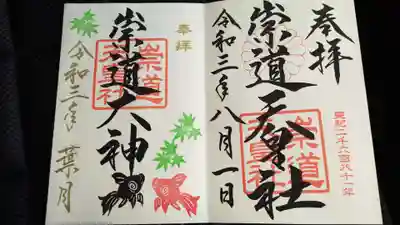 奉拝
崇道天皇社
令和三年八月一日
皇紀二千六百八十一年
崇道
天皇社
奉拝
崇道大神
令和三年 葉月
崇道
天皇社